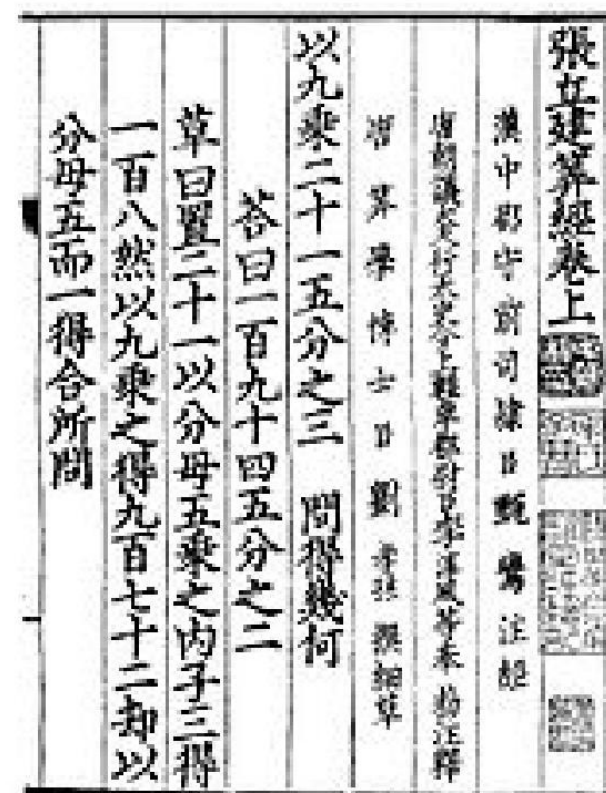 張丘建筭經卷上
漢中郡守前司隸臣甄鸞注經
唐朝議大夫行太史令上輕車都尉臣李淳風等奉 勑注釋
唐筭學博士臣劉孝孫撰細草
以九乘二十一五分之三 問得幾何
荅曰一百九十四五分之二
草曰置二十一以分母五乘之内子三得
一百八然以九乘之得九百七十二却以
分母五而一得合所問